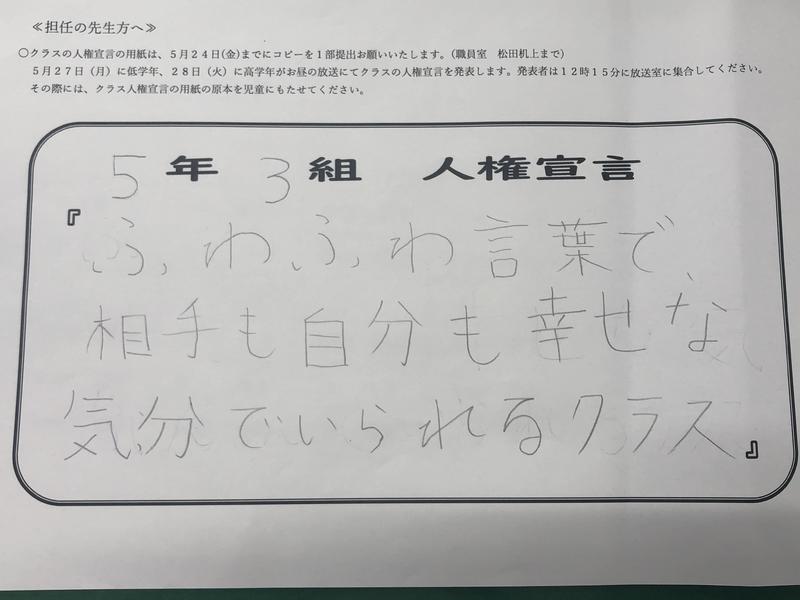 ≪担任の先生方へ≫
○クラスの人権宣言の用紙は、５月２４日(金)までにコピーを１部提出お願いいたします。（職員室　松田机上まで）
５月２７日（月）に低学年、２８日（火）に高学年がお昼の放送にてクラスの人権宣言を発表します。発表者は１２時１５分に放送室に集合してください。
その際には、クラス人権宣言の用紙の原本を児童にもたせてください。
5年 3組　人権宣言
『ふわふわ言葉で、
相手も自分も幸せな
気分でいられるクラス』